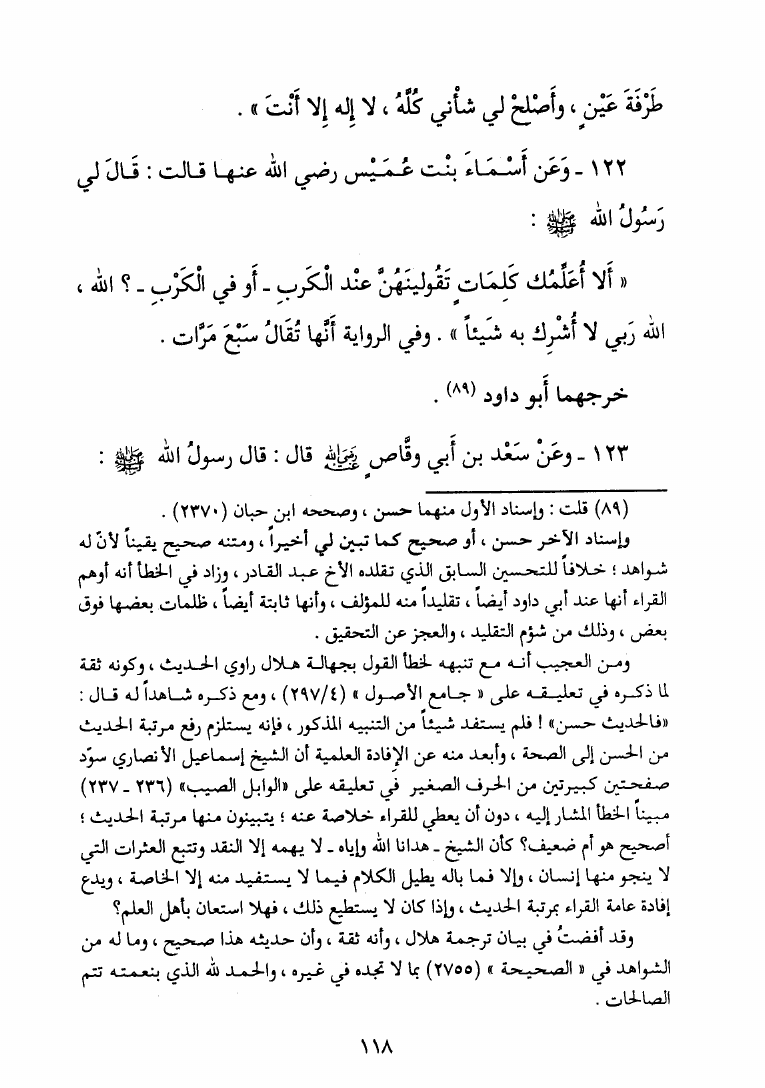 طَرْفَةَ عَيْنٍ ، وأَصْلِحْ لي شأْني كُلَّهُ ، لا إِله إِلا أَنْتَ » .
١٢٢ ـ وَعَن أَسْمَاءَ بنْت عُمَيْس رضي الله عنها قالت : قَالَ لي
رَسُولُ الله ﷺ :
« أَلا أُعَلِّمُك كَلِمَاتٍ تَقُولينَهُنَّ عنْد الْكَربِ ـ أَو في الْكَرْبِ ـ ؟ الله ،
الله رَبي لا أُشْرِك به شَيئاً » . وفي الرواية أَنَّها تُقَالُ سَبْعَ مَرَّات .
خرجهما أَبو داود (٨٩) .
١٢٣ ـ وعَنْ سَعْد بن أَبي وقَّاصٍ رَضِيَ اللهُ عَنْهُ قال : قال رسولُ الله ﷺ :
(٨٩) قلت : وإسناد الأول منهما حسن ، وصححه ابن حبان (٢٣٧٠) .
وإسناد الآخر حسن ، أو صحيح كما تبين لي أخيراً ، ومتنه صحيح يقيناً لأنّ له
شواهد ؛ خلافاً للتحسين السابق الذي تقلده الأخ عبد القادر ، وزاد في الخطأ أنه أوهم
القراء أنها عند أبي داود أيضاً ، تقليداً منه للمؤلف ، وأنها ثابتة أيضاً ، ظلمات بعضها فوق
بعض ، وذلك من شؤم التقليد ، والعجز عن التحقيق .
ومن العجيب أنه مع تنبهه لخطأ القول بجهالة هلال راوي الحديث ، وكونه ثقة
لما ذكره في تعليقه على « جامع الأصول » (٢٩٧/٤) ، ومع ذكره شاهداً له قال :
«فالحديث حسن» ! فلم يستفد شيئاً من التنبيه المذكور ، فإنه يستلزم رفع مرتبة الحديث
من الحسن إلى الصحة ، وأبعد منه عن الإفادة العلمية أن الشيخ إسماعيل الأنصاري سوّد
صفحتين كبيرتين من الحرف الصغير في تعليقه على «الوابل الصيب» (٢٣٦ ـ ٢٣٧)
مبيناً الخطأ المشار إليه ، دون أن يعطي للقراء خلاصة عنه ؛ يتبينون منها مرتبة الحديث ؛
أصحيح هو أم ضعيف؟ كأن الشيخ ـ هدانا الله وإياه ـ لا يهمه إلا النقد وتتبع العثرات التي
لا ينجو منها إنسان ، وإلا فما باله يطيل الكلام فيما لا يستفيد منه إلا الخاصة ، ويدع
إفادة عامة القراء بمرتبة الحديث ، وإذا كان لا يستطيع ذلك ، فهلا استعان بأهل العلم؟
وقد أفضتُ في بيان ترجمة هلال ، وأنه ثقة ، وأن حديثه هذا صحيح ، وما له من
الشواهد في « الصحيحة » (٢٧٥٥) بما لا تجده في غيره ، والحمد لله الذي بنعمته تتم
الصالحات .
١١٨